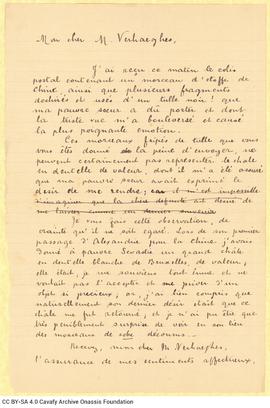 Mon cher M. Verhaeghes,
J'ai reçu ce matin le colis
postal contenant un morceau d'étoffe de
Chine, ainsi que plusieurs fragments
déchirés et usés d'un tulle noir, que
ma pauvre sœur a dû porter et dont
la triste vue m'a bouleversé et causé
la plus poignante émotion.
Ces morceaux fripés de tulle que vous
vous êtes donné la peine d'envoyer, ne
peuvent certainement pas représenter le châle
en dentelle de valeur, dont il m'a été assuré
que ma pauvre sœur avait exprimé le
désir de me rendre; car il m'est impossible
d'imaginer que la chère défunte ait désiré de
me laisser comme un dernier souvenir
Je vous fais cette observation, de
crainte qu'il ne soit égaré. Lors de son premier
passage d'Alexandrie pour la Chine, j'avais
donné à pauvre un grand châle
en dentelle blanche de Bruxelles, de valeur;
elle était, je me souviens tout émue, et ne
voulait pas l'accepter et me priver d'un
objet si précieux; or, j'ai bien compris que
naturellement son dernier désir était que ce
châle me fut retourné, et je n'ai pu être que
très péniblement surprise de voir en son lieu
des morceaux de robe décousus.
Recevez, mon cher M. Verhaeghes,
l'assurance de mes sentiments affectueux.
CC BY-SA 4.0 Cavafy Archive Onassis Foundation